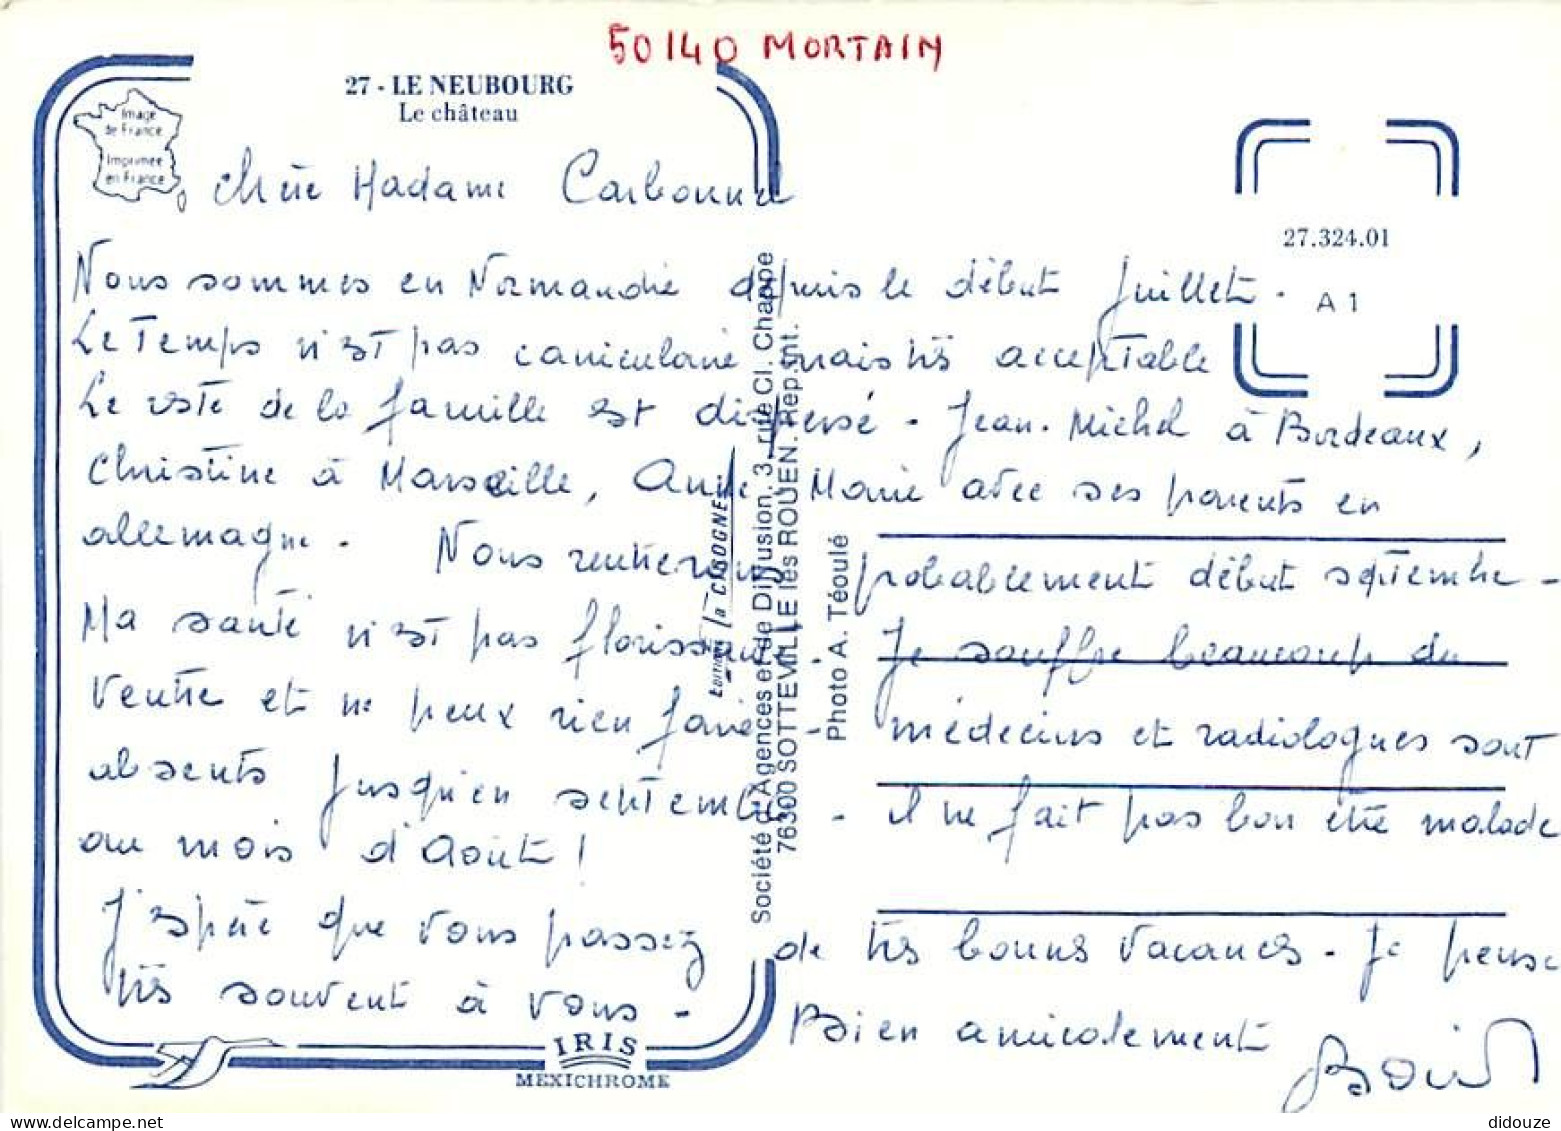 50140 MORTAIN
27 - LE NEUBOURG
Le château
Image
de France
Imprimée
en France
27.324.01
A 1
Chère Madame
Nous sommes en Normandie depuis le début Juillet.
Le Temps n'est pas caniculaire mais très acceptable
Le reste de la famille est dispersé - Jean-Michel à Bordeaux,
Christine à Marseille, Anne Marie avec ses parents en
allemagne. Nous rentrerons probablement début septembre -
Ma santé n'est pas florissante - Je souffre beaucoup du
ventre et ne peux rien faire - médecins et radiologues sont
absents jusqu'en septembre - il ne fait pas bon être malade
au mois d'Août !
J'espère que vous passez de très bonnes vacances - Je pense
très souvent à vous - Bien amicalement
Editions la CIGOGNE
Société d'Agences et de Diffusion, 3, rue Cl. Chappe
76300 SOTTEVILLE lès ROUEN. Rep. int.
Photo A. Téoulé
IRIS
MEXICHROME
didouze